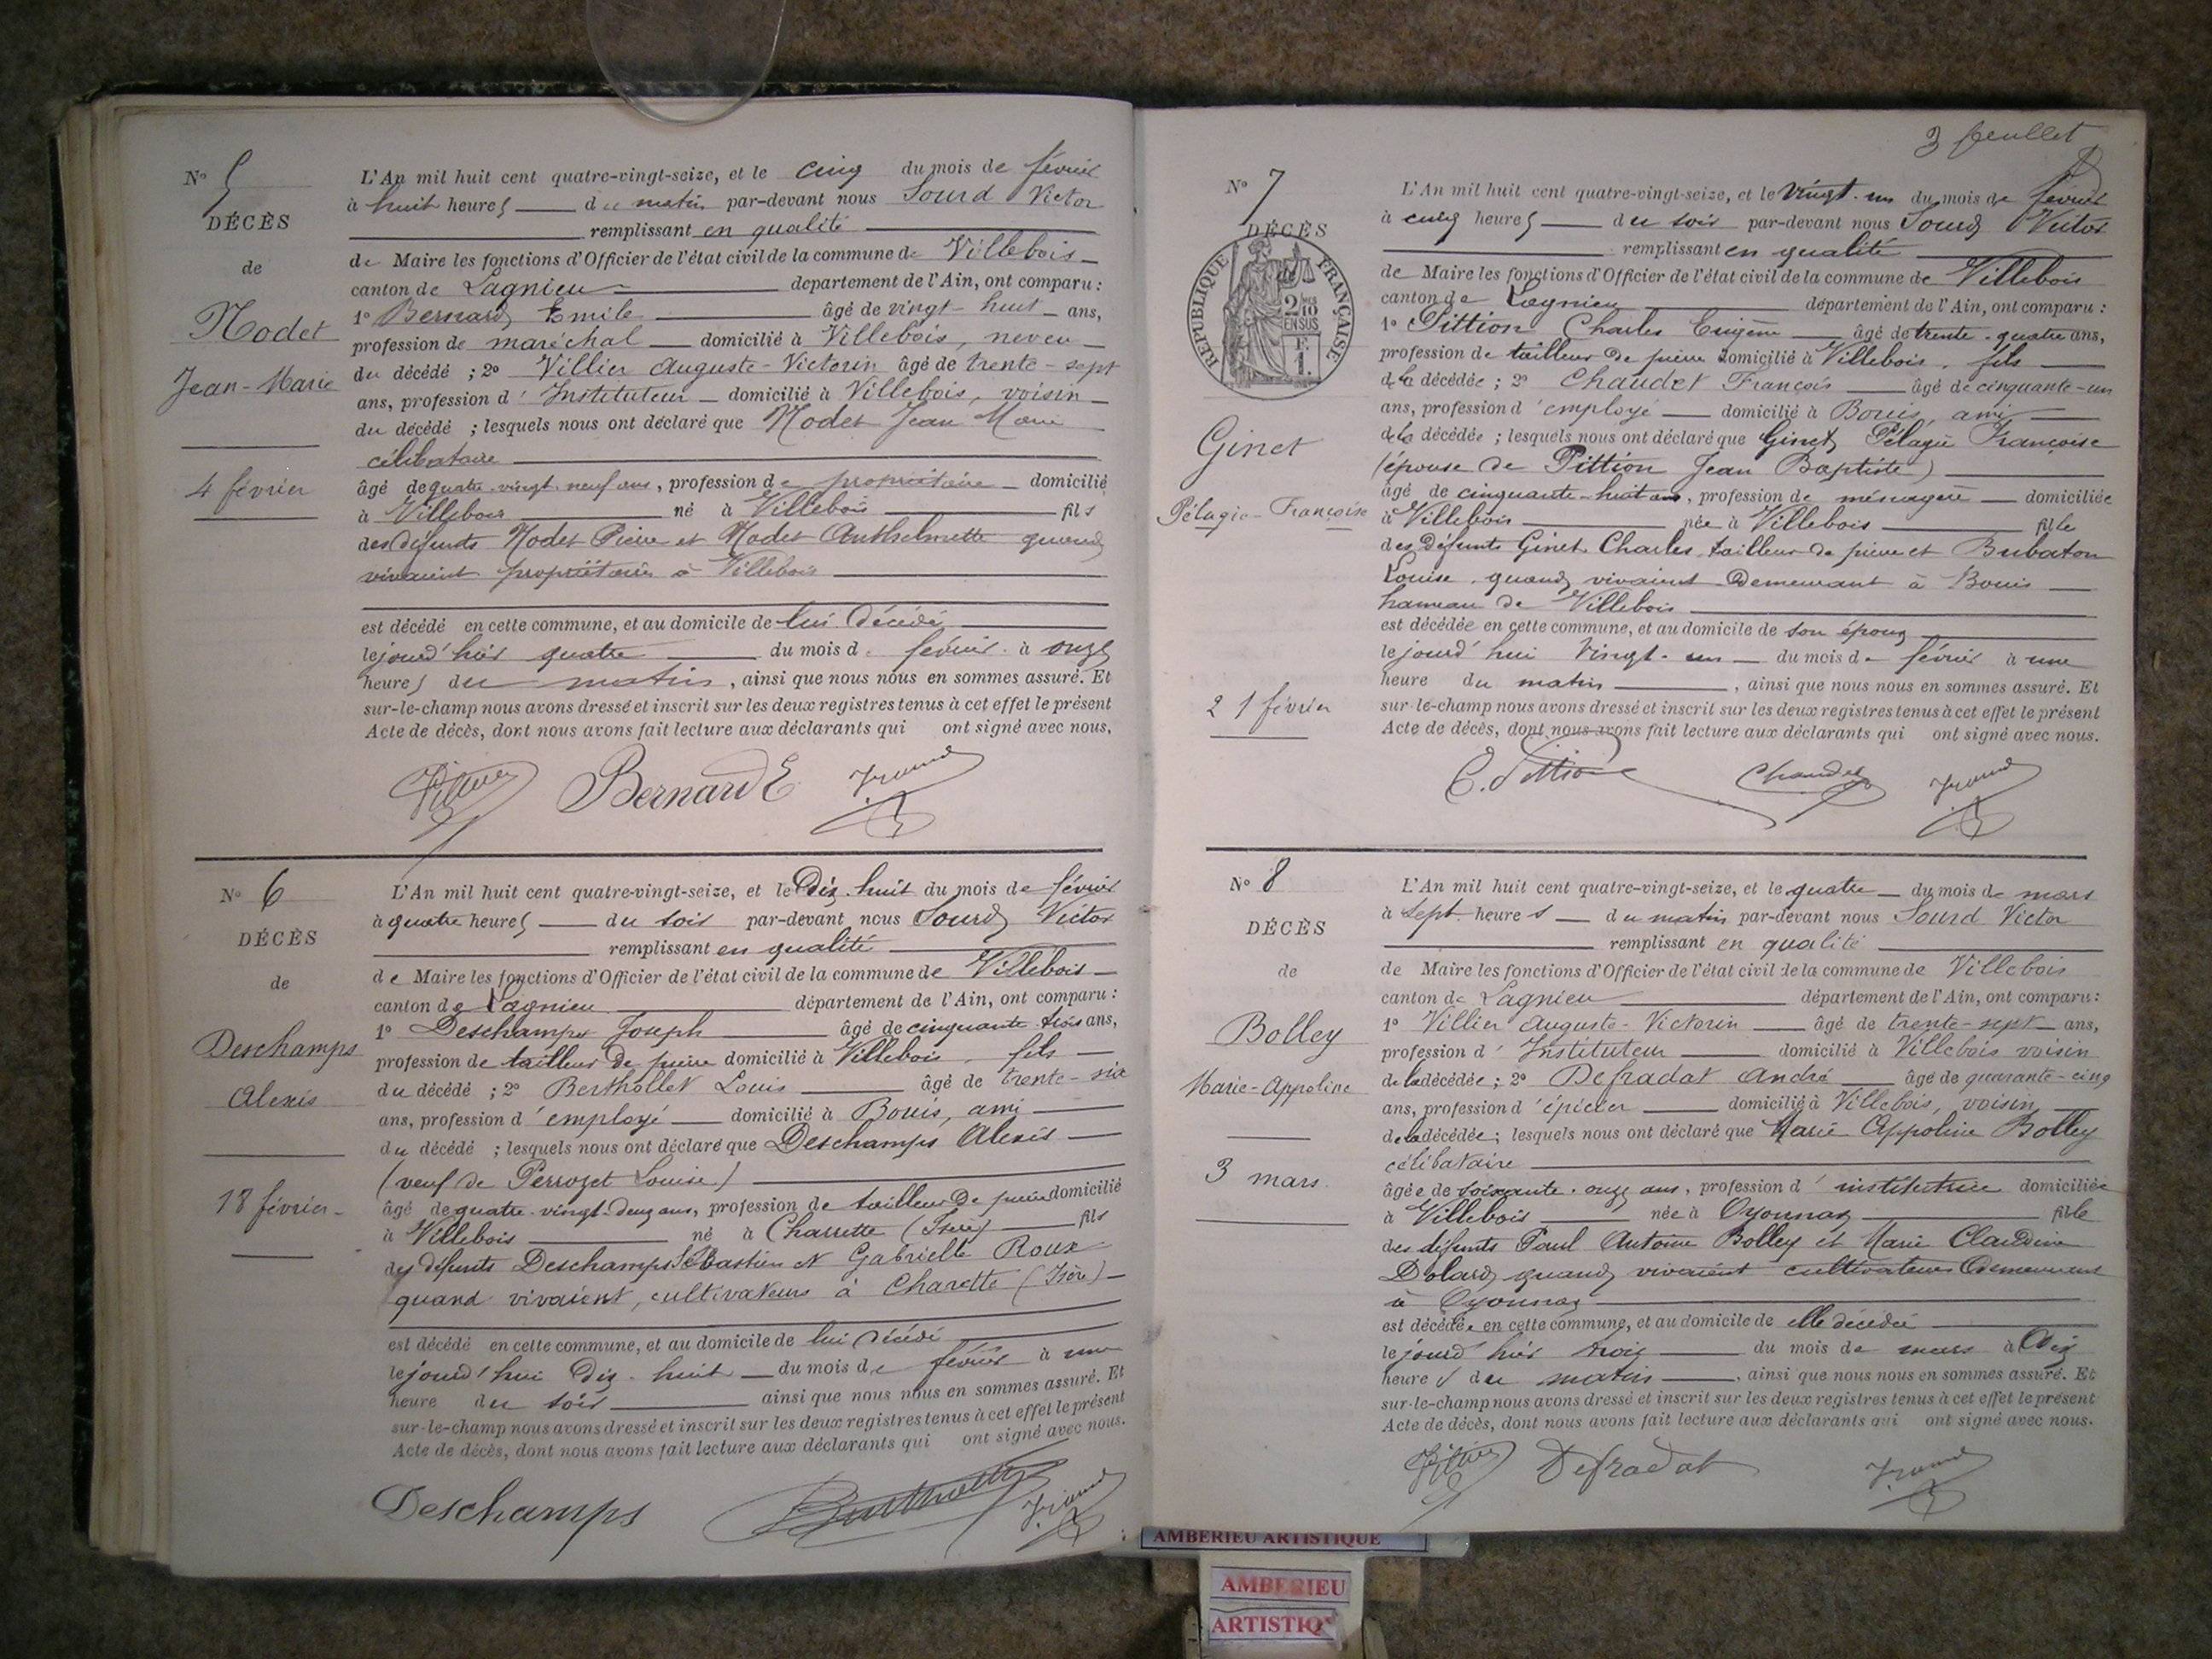 N° 5
DÉCÈS
de
Nodet
Jean-Marie
4 février
L'An mil huit cent quatre-vingt-seize, et le cinq du mois de février
à huit heures du matin par-devant nous Sourd Victor
remplissant en qualité
de Maire les fonctions d'Officier de l'état civil de la commune de Villebois
canton de Lagnieu département de l'Ain, ont comparu :
1° Bernard Emile âgé de vingt-huit ans,
profession de maréchal domicilié à Villebois, neveu
du décédé ; 2° Villier Auguste-Victorin âgé de trente-sept
ans, profession d'Instituteur domicilié à Villebois, voisin
du décédé ; lesquels nous ont déclaré que Nodet Jean Marie
célibataire
âgé de quatre-vingt-neuf ans, profession de propriétaire domicilié
à Villebois né à Villebois fils
des défunts Nodet Pierre et Nodet Anthelmette quand
vivaient propriétaires à Villebois
est décédé en cette commune, et au domicile de lui décédé
le jourd'hier quatre du mois de février à onze
heures du matin, ainsi que nous nous en sommes assuré. Et
sur-le-champ nous avons dressé et inscrit sur les deux registres tenus à cet effet le présent
Acte de décès, dont nous avons fait lecture aux déclarants qui ont signé avec nous.
Villier Bernard E Sourd
N° 6
DÉCÈS
de
Deschamps
Alexis
18 février
L'An mil huit cent quatre-vingt-seize, et le Dix-huit du mois de février
à quatre heures du soir par-devant nous Sourd Victor
remplissant en qualité
de Maire les fonctions d'Officier de l'état civil de la commune de Villebois
canton de Lagnieu département de l'Ain, ont comparu :
1° Deschamps Joseph âgé de cinquante-trois ans,
profession de tailleur de pierre domicilié à Villebois, fils
du décédé ; 2° Berthollet Louis âgé de trente-six
ans, profession d'employé domicilié à Bouis, ami
du décédé ; lesquels nous ont déclaré que Deschamps Alexis
(veuf de Perrozet Louise)
âgé de quatre-vingt-deux ans, profession de tailleur de pierre domicilié
à Villebois né à Charrette (Isère) fils
des défunts Deschamps Sébastien et Gabrielle Roux
quand vivaient, cultivateurs à Charette (Isère)
est décédé en cette commune, et au domicile de lui décédé
le jourd'hui Dix-huit du mois de février à une
heure du soir ainsi que nous nous en sommes assuré. Et
sur-le-champ nous avons dressé et inscrit sur les deux registres tenus à cet effet le présent
Acte de décès, dont nous avons fait lecture aux déclarants qui ont signé avec nous.
Deschamps Berthollet Sourd
3 feuillet
N° 7
DÉCÈS
de
RÉPUBLIQUE FRANÇAISE
2/10 EN SUS
F. 1.
Ginet
Pélagie-Françoise
21 février
L'An mil huit cent quatre-vingt-seize, et le Vingt-un du mois de février
à cinq heures du soir par-devant nous Sourd Victor
remplissant en qualité
de Maire les fonctions d'Officier de l'état civil de la commune de Villebois
canton de Lagnieu département de l'Ain, ont comparu :
1° Pittion Charles Eugène âgé de trente-quatre ans,
profession de tailleur de pierre domicilié à Villebois, fils
de la décédée ; 2° Chaudet François âgé de cinquante-un
ans, profession d'employé domicilié à Bouis, ami
de la décédée ; lesquels nous ont déclaré que Ginet Pélagie Françoise
(épouse de Pittion Jean Baptiste)
âgé de cinquante-huit ans, profession de ménagère domiciliée
à Villebois née à Villebois fille
des défunts Ginet Charles tailleur de pierre et Bubaton
Louise, quand vivaient Demeurant à Bouis
hameau de Villebois
est décédée en cette commune, et au domicile de son époux
le jourd'hui Vingt-un du mois de février à une
heure du matin, ainsi que nous nous en sommes assuré. Et
sur-le-champ nous avons dressé et inscrit sur les deux registres tenus à cet effet le présent
Acte de décès, dont nous avons fait lecture aux déclarants qui ont signé avec nous.
C. Pittion Chaudet Sourd
N° 8
DÉCÈS
de
Bolley
Marie-Appoline
3 mars
L'An mil huit cent quatre-vingt-seize, et le quatre du mois de mars
à sept heures du matin par-devant nous Sourd Victor
remplissant en qualité
de Maire les fonctions d'Officier de l'état civil de la commune de Villebois
canton de Lagnieu département de l'Ain, ont comparu :
1° Villier Auguste-Victorin âgé de trente-sept ans,
profession d'Instituteur domicilié à Villebois voisin
de la décédée ; 2° Defradat André âgé de quarante-cinq
ans, profession d'épicier domicilié à Villebois, voisin
de la décédée ; lesquels nous ont déclaré que Marie Appoline Bolley
célibataire
âgée de soixante-onze ans, profession d'institutrice domiciliée
à Villebois née à Oyonnax fille
des défunts Paul Antoine Bolley et Marie Claudine
Dolard quand vivaient cultivateurs Demeurant
à Oyonnax
est décédée en cette commune, et au domicile de elle décédée
le jourd'hier trois du mois de mars à Dix
heures du matin, ainsi que nous nous en sommes assuré. Et
sur-le-champ nous avons dressé et inscrit sur les deux registres tenus à cet effet le présent
Acte de décès, dont nous avons fait lecture aux déclarants qui ont signé avec nous.
Villier Defradat Sourd
AMBERIEU ARTISTIQUE
AMBERIEU
ARTISTIQ